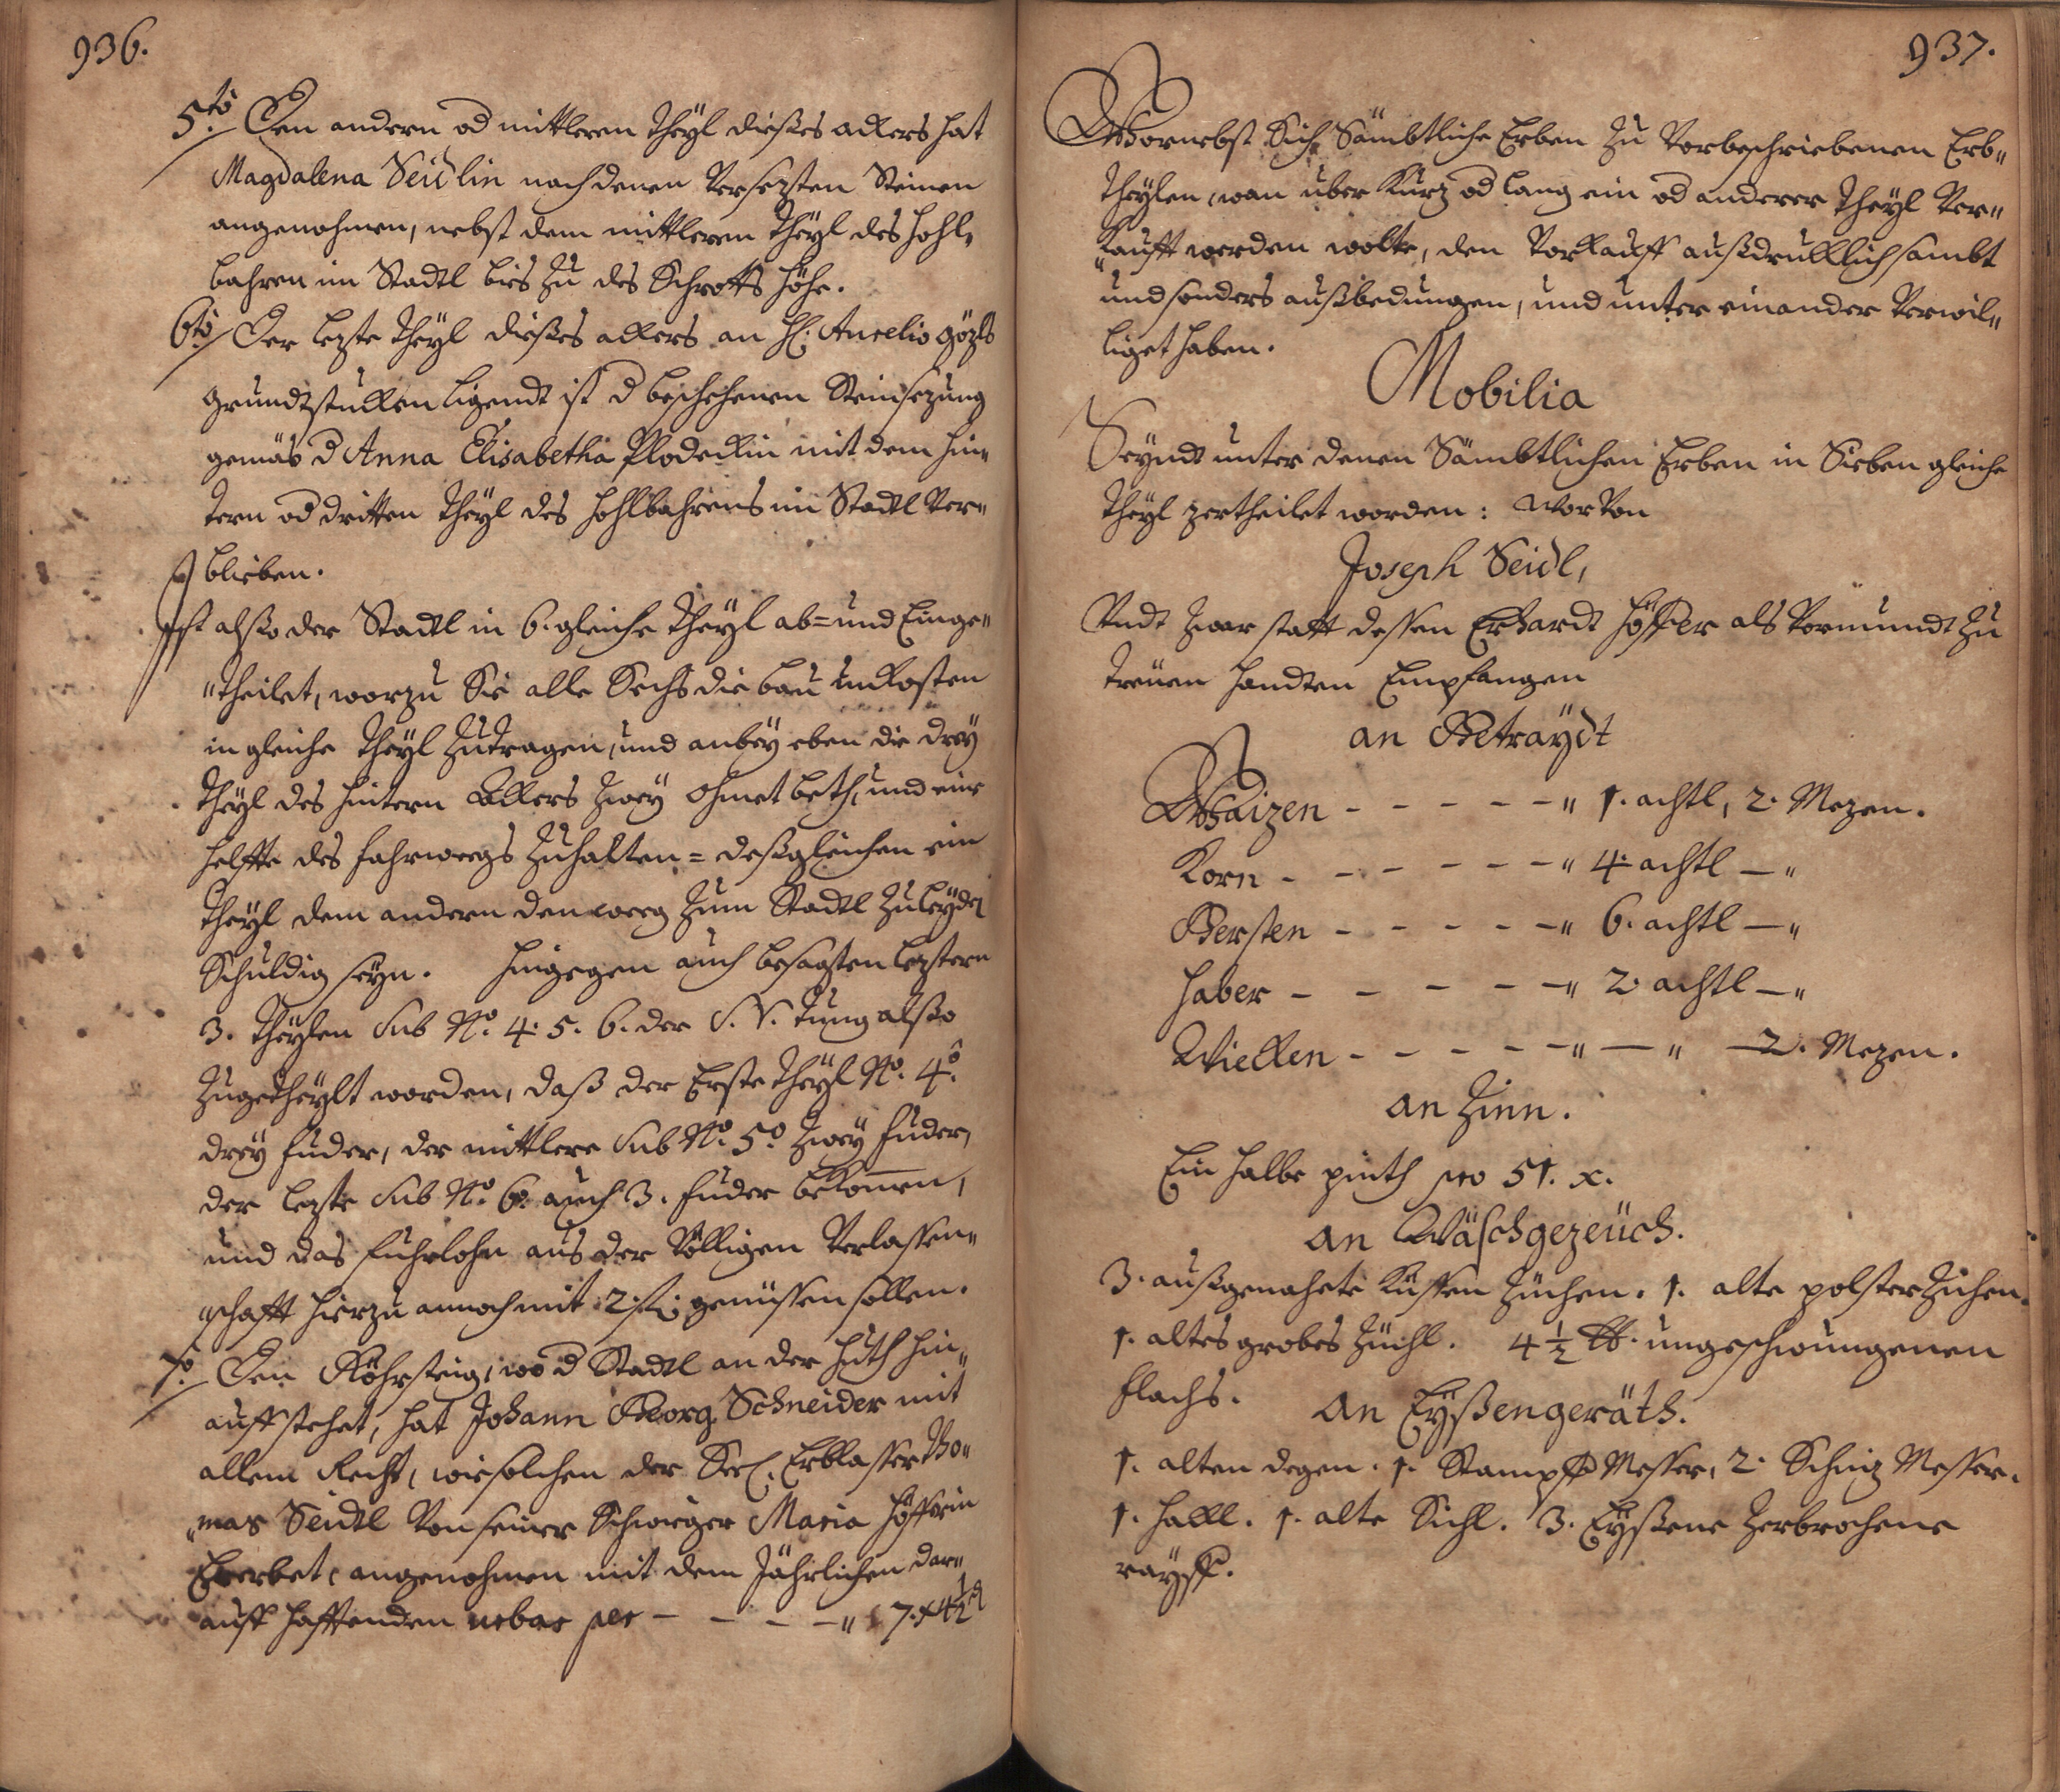 936.
5to Den andern od mittleren Theÿl dießes ackers hat
Magdalena Seidlin nach denen versezten Steinen
angenohmen, nebst dem mittleren Theÿl des Hohl„
bahren im Stadl bies zu des Schrotts Höhe.
6to Der lezte Theÿl dießes ackers an H: Aurelio Gözls
grundtstucken ligendt ist d beschehenen Steinsezung
gemäs d Anna Elisabetha Plodeckin mit dem hin„
tern od dritten Theÿl des Hohlbahrens im Stadl ver„
blieben.
Ist alßo der Stadl in 6. gleiche Theÿl ab= und Einge„
„theilet, worzu Sie alle Sechs die bau unkosten
in gleiche Theÿl zutragen, und anbeÿ eben die dreÿ
Theÿl des hintern Ackers zweÿ Ohmet beth, und eine
helffte des fahrweegs zuhalten = deßgleichen ein
Theÿl dem andern den weeg zum Stadl zuleÿden
Schuldig seÿn. Hingegen auch besagten leztern
3. Theÿlen Sub No. 4. 5. 6. der S. V. Tung alßo
zugetheÿlt worden, daß der Erste Theÿl No. 4o.
dreÿ fuder, der mittlere Sub No. 5o zweÿ fuder,
der lezte Sub No. 6o auch 3. fuder bekommen,
und das fuhrlohn aus der völligen Verlassen„
„schafft hierzu annoch mit 2 f genüssen sollen.
7o. Den Röhrsteig, wo d Stadl an der Huth hin„
auff stehet, hat Johann Georg Schneider mit
allem Recht, wie solchen der Seel. Erblasser Tho„
„mas Seidl von seiner Schwiger Maria Höfferin
Ererbet, angenohmen mit dem Jährlichen dar„
auff hafftenden urbar per - - - - „ 7. x 4½ d
937.
Wornebst Sich Sämbtliche Erben zu vorbeschriebenen Erb„
theÿlen, wan über Kurz od lang ein od anderer Theÿl ver„
„kaufft werden wolte, den Vorkauff außdrucklich sambt
und sonders außbedungen, und unter einander verwil„
liget haben.
Mobilia
Seÿndt unter denen Sämbtlichen Erben in Sieben gleiche
Theÿl zertheilet worden: Wovon
Joseph Seidl,
Undt zwar statt dessen Erhardt Höffer als Vormundt zu
treüen Handten Empfangen
an Getraÿdt
Waizen - - - - - „ 1. achtl, 2. Mezen.
Korn - - - - - - „ 4. achtl — „
Gersten - - - - - „ 6. achtl — „
Haber - - - - - „ 2. achtl — „
Wicken - - - - - „ — „ — 2. Mezen.
an Zinn.
Ein halbe pinth pro 51. x.
an Wäschgezeüch.
3. außgenahete Küssen Züchen. 1. alte polster Zichen.
1. altes grobes Züchl. 4 ½ lb. ungeschwungenen
flachs.
An Eÿßengeräth.
1. alten degen. 1. Stampff Messer, 2. Schniz Messer.
1. Hackl. 1. alte Sichl. 3. Eÿßene zerbrochene
raÿff.